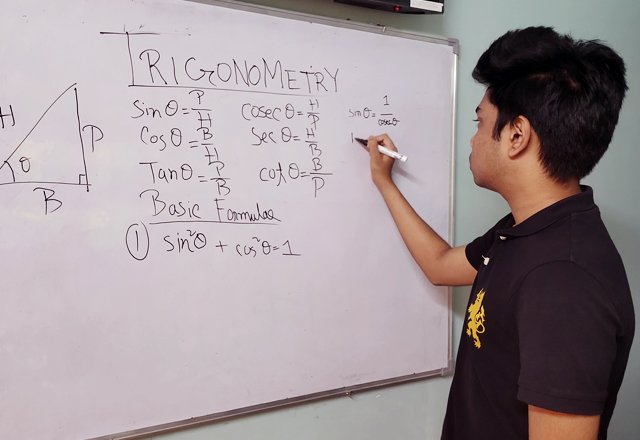 TRIGONOMETRY
H
P
θ
B
sinθ = P/H cosecθ = H/P
cosθ = B/H secθ = H/B
Tanθ = P/B cotθ = B/P
sinθ = 1/cosecθ
Basic Formulae
① sin²θ + cos²θ = 1